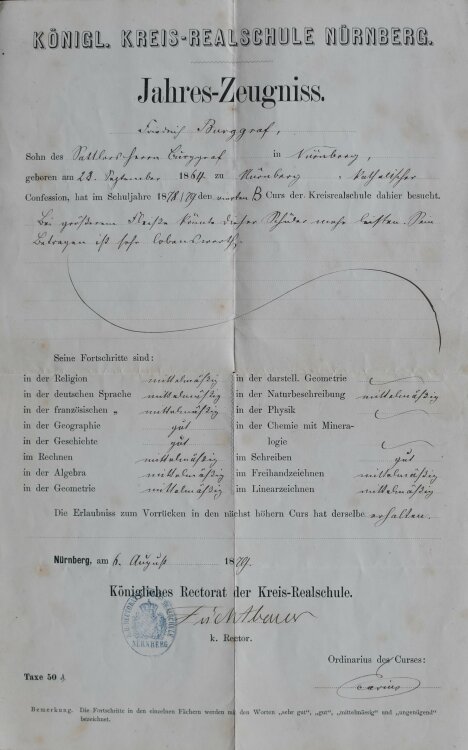 KÖNIGL. KREIS-REALSCHULE NÜRNBERG.
Jahres-Zeugniss.
Friedrich Burggraf,
Sohn des Sattlers Herrn Burggraf in Nürnberg,
geboren am 23. September 1864 zu Nürnberg, katholischer
Confession, hat im Schuljahre 1878/79 den vierten B Curs der Kreisrealschule dahier besucht.
Bei größerem Fleiße könnte dieser Schüler mehr leisten. Sein
Betragen ist sehr lobenswerth.
Seine Fortschritte sind:
in der Religion mittelmäßig
in der deutschen Sprache mittelmäßig
in der französischen „ mittelmäßig
in der Geographie gut
in der Geschichte gut
im Rechnen mittelmäßig
in der Algebra mittelmäßig
in der Geometrie mittelmäßig
in der darstell. Geometrie
in der Naturbeschreibung mittelmäßig
in der Physik
in der Chemie mit Minera-
logie
im Schreiben gut
im Freihandzeichnen mittelmäßig
im Linearzeichnen mittelmäßig
Die Erlaubniss zum Vorrücken in den nächst höhern Curs hat derselbe erhalten.
Nürnberg, am 6. August 1879.
Königliches Rectorat der Kreis-Realschule.
Füchtbauer
k. Rector.
NÜRNBERG
Ordinarius des Curses:
Taxe 50 ₰
Bemerkung. Die Fortschritte in den einzelnen Fächern werden mit den Worten „sehr gut“, „gut“, „mittelmässig“ und „ungenügend“
bezeichnet.